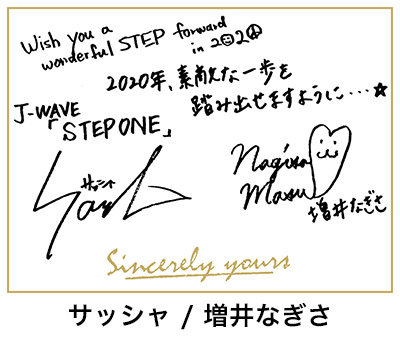 Wish you a
wonderful STEP forward
in 2020
2020年、素敵な一歩を
踏み出せますように…☆
J-WAVE
「STEP ONE」
サッシャ
Nagisa
Masui
増井なぎさ
Sincerely yours
サッシャ / 増井なぎさ